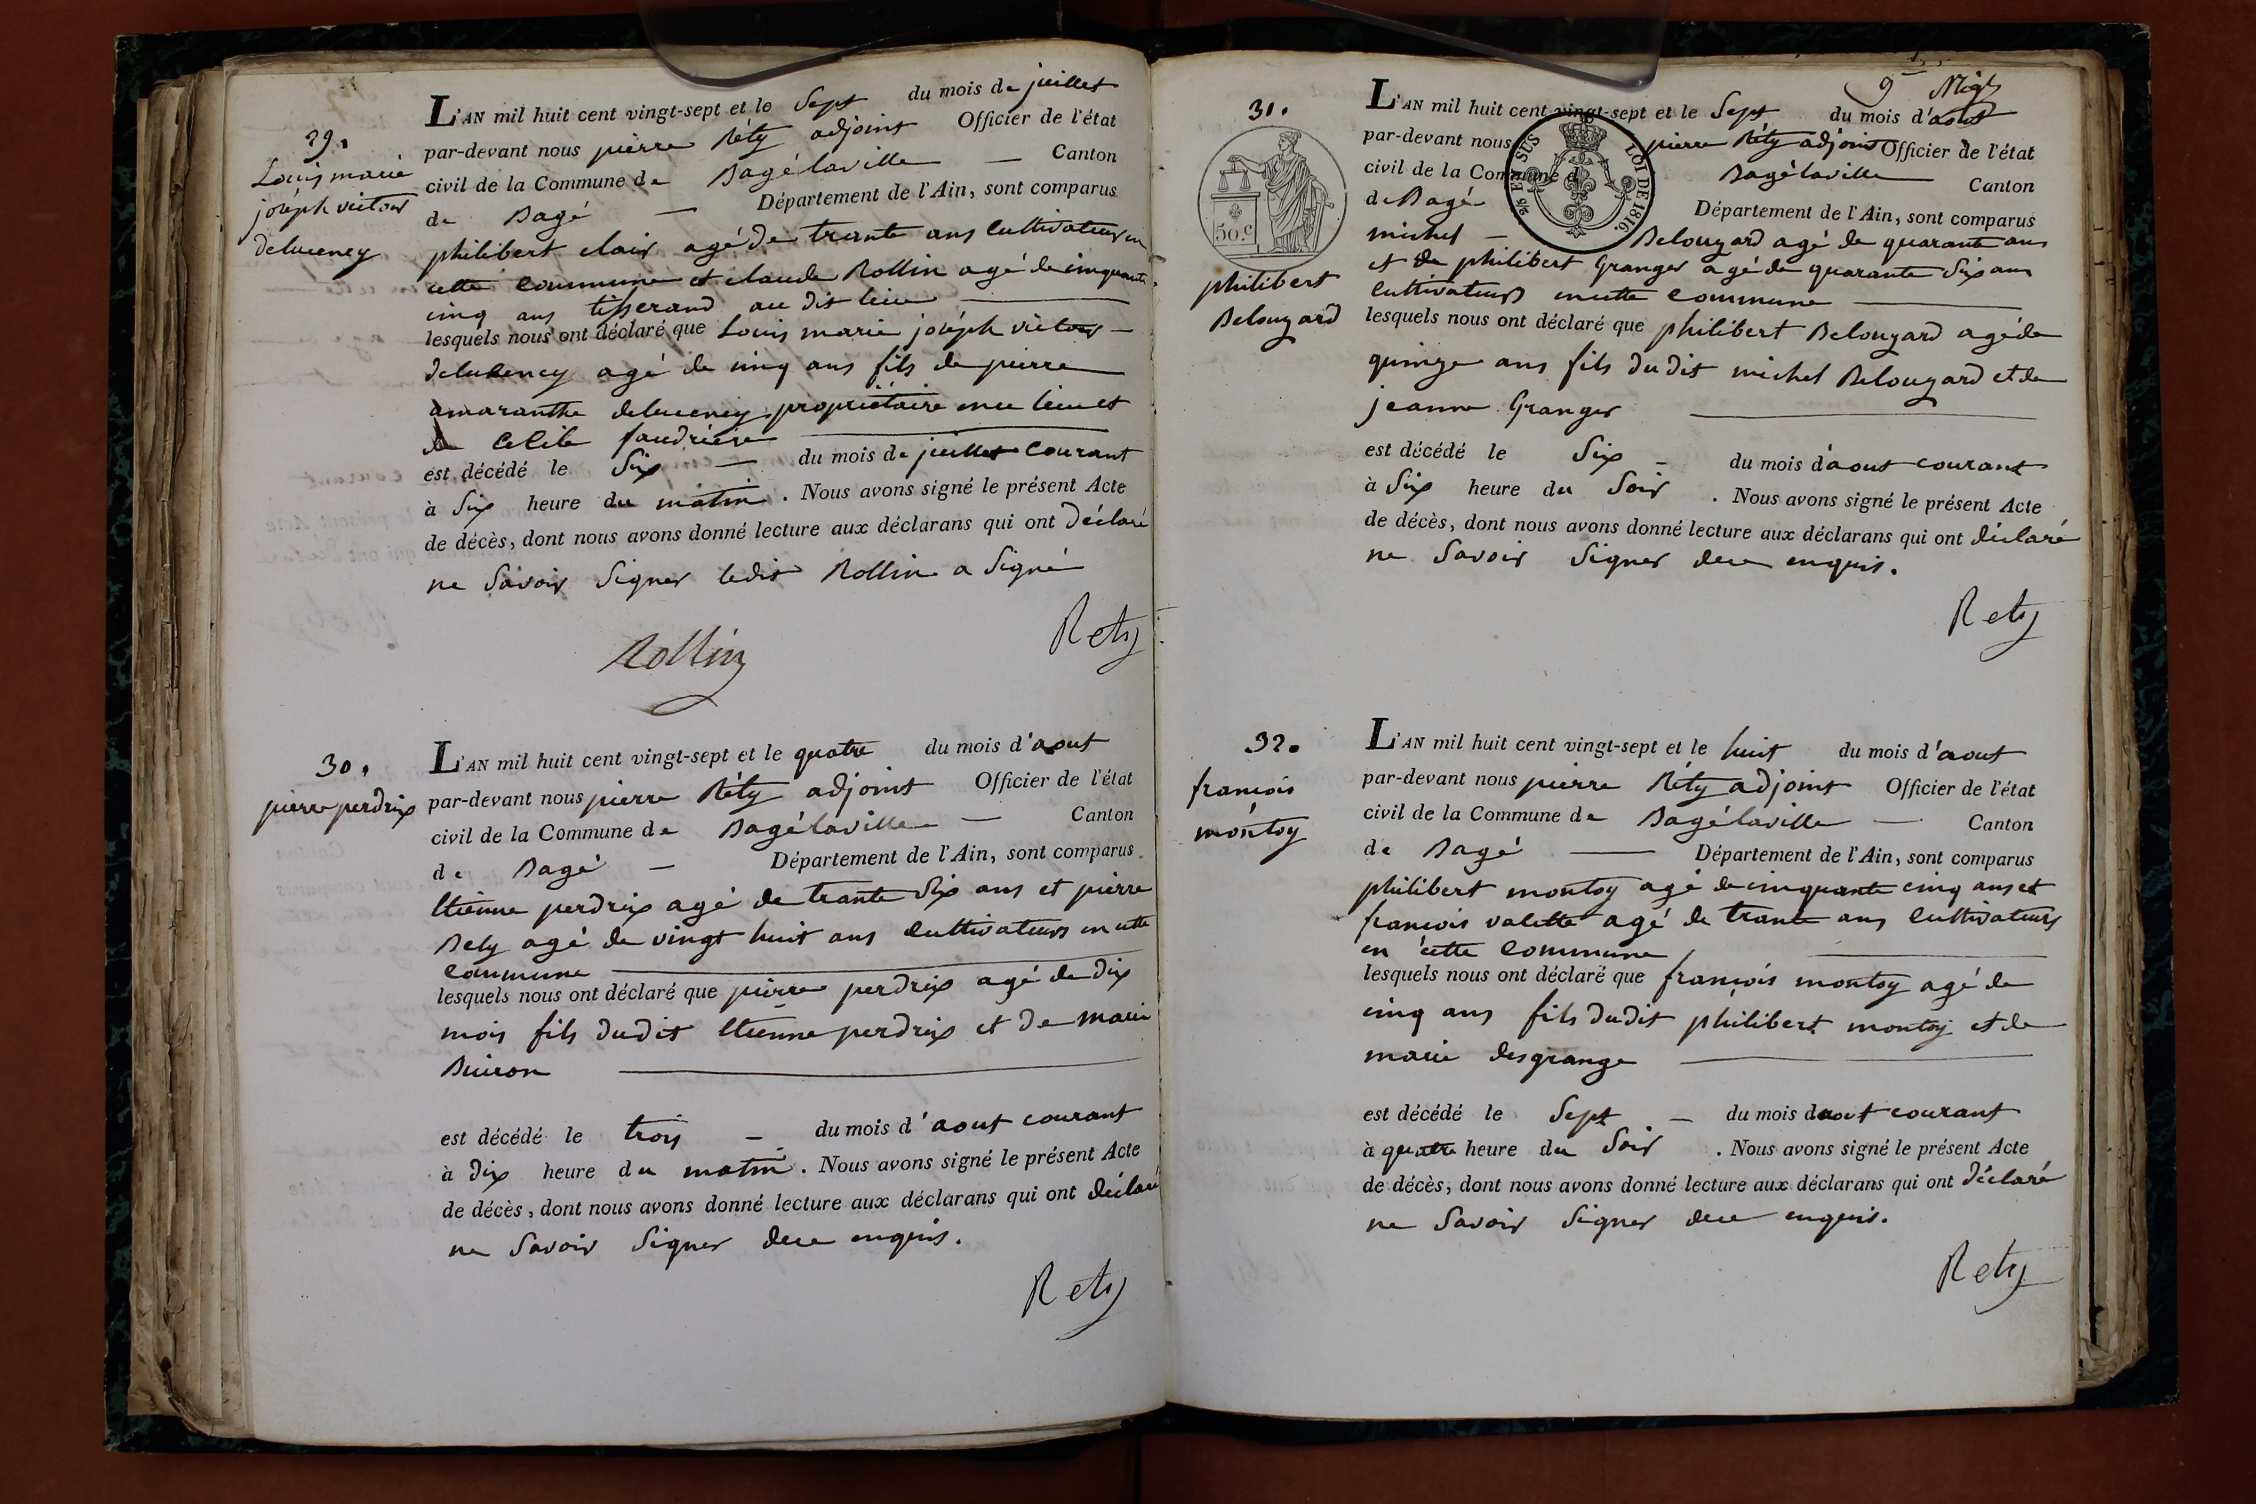 29.
Louis marie
joséph victor
deluceney
L'AN mil huit cent vingt-sept et le Sept du mois de juillet
par-devant nous pierre Réty adjoint Officier de l'état
civil de la Commune de Bagé laville — Canton
de Bagé — Département de l'Ain, sont comparus
philibert clair agé de trante ans cultivateur en
cette commune et claude Rollin agé de cinquante
cinq ans tisserand au dit lieu
lesquels nous ont déclaré que Louis marie joséph victor
deluceney agé de cinq ans fils de pierre
amaranthe deluceney propriétaire en ce lieu et
de Celile
est décédé le Six — du mois de juillet courant
à Six heure du matin. Nous avons signé le présent Acte
de décès, dont nous avons donné lecture aux déclarans qui ont déclaré
ne Savoir Signer ledit Rollin a Signé
Rollin
Rety
30.
pierre perdrix
L'AN mil huit cent vingt-sept et le quatre du mois d'aout
par-devant nous pierre Réty adjoint Officier de l'état
civil de la Commune de Bagé laville — Canton
de Bagé — Département de l'Ain, sont comparus
Etienne perdrix agé de trante Six ans et pierre
Rety agé de vingt huit ans cultivateurs en cette
commune
lesquels nous ont déclaré que pierre perdrix agé de dix
mois fils dudit Etienne perdrix et de marie
Buiron
est décédé le trois — du mois d'aout courant
à dix heure du matin. Nous avons signé le présent Acte
de décès, dont nous avons donné lecture aux déclarans qui ont déclaré
ne Savoir Signer de ce enquis.
Rety
31.
50.c
philibert
Belouzard
LOI DE 1816.
L'AN mil huit cent vingt-sept et le Sept du mois d'aout
par-devant nous pierre Réty adjoint Officier de l'état
civil de la Commune d Bagé laville Canton
de Bagé Département de l'Ain, sont comparus
michel — Belouzard agé de quarante ans
et de philibert Granger agé de quarante Six ans
cultivateurs en cette commune
lesquels nous ont déclaré que philibert Belouzard agé de
quinze ans fils dudit michel Belouzard et de
jeanne Granger
est décédé le Six — du mois d'aout courant
à Six heure du Soir. Nous avons signé le présent Acte
de décès, dont nous avons donné lecture aux déclarans qui ont déclaré
ne Savoir Signer de ce enquis.
Rety
32.
francois
montoy
L'AN mil huit cent vingt-sept et le huit du mois d'aout
par-devant nous pierre Réty adjoint Officier de l'état
civil de la Commune de Bagé laville — Canton
de Bagé — Département de l'Ain, sont comparus
philibert montoy agé de cinquante cinq ans et
francois valette agé de trante ans cultivateurs
en cette commune
lesquels nous ont déclaré que francois montoy agé de
cinq ans fils dudit philibert montoy et de
marie desgrange
est décédé le Sept — du mois daout courant
à quatre heure du Soir. Nous avons signé le présent Acte
de décès, dont nous avons donné lecture aux déclarans qui ont déclaré
ne Savoir Signer de ce enquis.
Rety